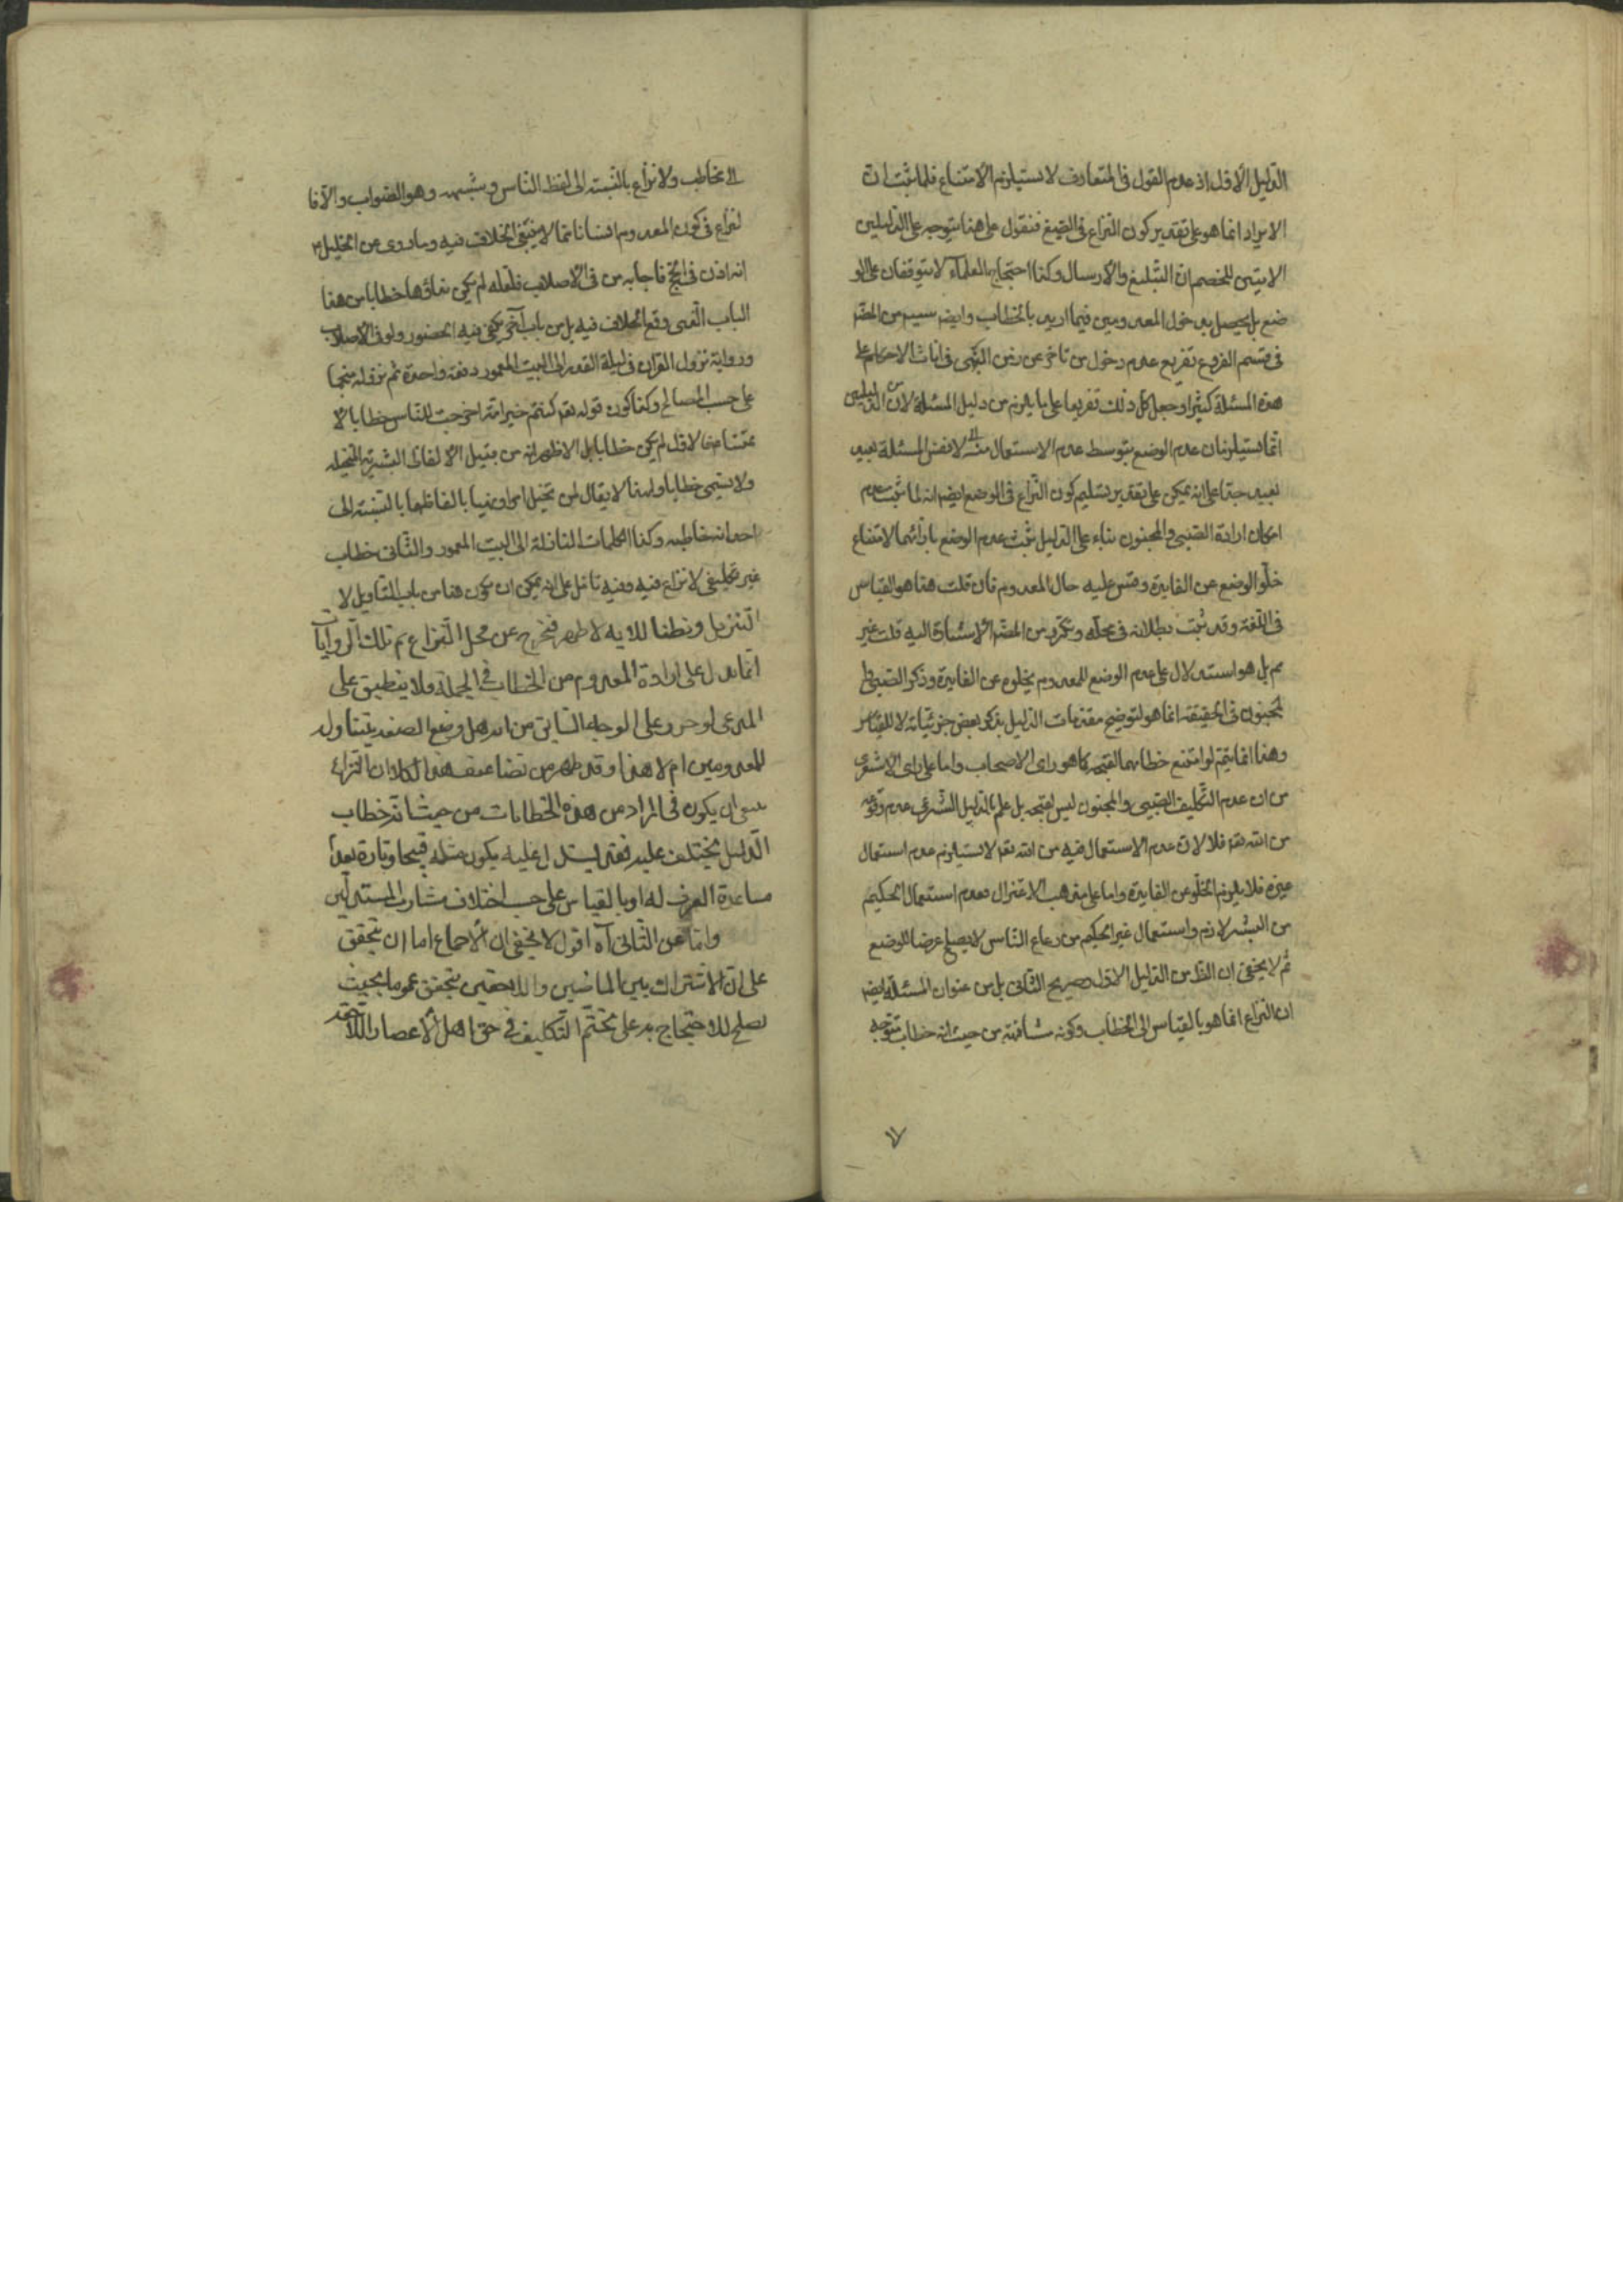 الدليل الاول اذ عدم القول فى المتعارف لا يستلزم الامتناع فلما ثبت ان
الايراد انما هو على تقدير كون النزاع فى الصيغ فنقول على هذا يتوجه على الدليلين
الاتيين للخصم ان التبليغ والارسال وكذا احتجاج العلماء لا يتوقفان على الو
ضع بل يحصل بدخول المعدومين فيما اريد بالخطاب وايضا من المصر
فى قسم الفروع تفريع عدم دخول من تاخر عن زمن فى اثبات الاحكام على
هذه المسئلة كثيرا وجعل كل ذلك تفريعا على ما يلزم من دليل المسئلة لان الدليلين
انما يستلزمان عدم الوضع بتوسط عدم الاستعمال لا نفس المسئلة بعيد
بعيد جدا على انه يمكن على تقدير تسليم كون النزاع فى الوضع ايضا انه لما ثبت عدم
امكان ارادة الصبى والمجنون بناء على الدليل ثبت عدم الوضع بازائهما لامتناع
خلو الوضع عن الفايدة وقس عليه حال المعدوم فان قلت هذا هو القياس
فى اللغة وقد ثبت بطلانه فى محله وتكرر من المصر الاشارة اليه قلت غير
مم بل هو استدلال على عدم الوضع للمعدوم بخلوه عن الفايدة وذكر الصبى وا
لمجنون فى الحقيقة انما هو لتوضيح مقدمات الدليل بذكر بعض جزئياته لا للقياس
وهذا انما يتم لو امتنع خطابهما لقبحه كما هو راى الاصحاب واما على راى الاشعرى
من ان عدم التكليف الصبى والمجنون ليس لقبحه بل علم بالدليل الشرعى عدم وقوعه
من الله تعالى فلا لان عدم الاستعمال فيه من الله تعالى لا يستلزم عدم استعمال
غيره فلا يلزم الخلو عن الفايدة واما على مذهب الاعتزال فعدم استعمال الحكيم
من البشر لازم واستعمال غير الحكيم من رعاع الناس لا يصلح غرضا للوضع
ثم لا يخفى ان الظ من الدليل الاول وصريح الثانى بل من عنوان المسئلة ايضا
ان النزاع انما هو بالقياس الى الخطاب وكونه مشافهة من حيث انه خطاب يتوجه
الى مخاطب ولا نزاع بالنسبة الى لفظ الناس وشبهه وهو الصواب والا فا
لنزاع فى كون المعدوم انسانا مما لا ينبغى الخلاف فيه وما روى عن الخليل
انه اذن فى الحج فاجابه من فى الاصلاب فلعله لم يكن نداؤها خطابا من هذا
الباب الذى وقع الخلاف فيه بل من باب آخر يكفى فيه الحضور ولو فى الاصلاب
ورواية نزول القران فى ليلة القدر الى البيت المعمور دفعة واحدة ثم نزوله منجما
على حسب المصالح وكذا كون قوله تعالى كنتم خير امة اخرجت للناس خطابا لا
فالاول لم يكن خطابا بل الاظهر انه من قبيل الالفاظ البشرية المتخيلة
ولا يسمى خطابا ولهذا لا يقال لمن تخيل امرا ونهيا بالفاظهما بالنسبة الى
احد انه خاطبه وكذا الكلمات النازلة الى البيت المعمور والثانى خطاب
غير تكليفى لا نزاع فيه وفيه تامل على انه يمكن ان يكون هذا من باب التاويل لا
التنزيل وبطنا للاية لا ظهر فتخرج عن محل النزاع ثم تلك الروايات
انما تدل على ارادة المعدوم من الخطاب فى الجملة ولا ينطبق على
المدعى لو حرر على الوجه السابق من انه هل وضع الصيغة يتناول
المعدومين ام لا هذا وقد ظهر من تضاعيف هذا الكلام ان النزاع
ينبغى ان يكون فى المراد من هذه الخطابات من حيث انه خطاب
الدليل يختلف عليه فقد يستدل عليه بكون مثله قبيحا وتارة بعد
مساعدة العرف له او بالقياس على حسب اختلاف مشارب المستدلين
واما عن الثانى آه اقول لا يخفى ان الاجماع اما ان يتحقق
على ان الاشتراك بين الماضين واللاحقين يتحقق عموما بحيث
يصلح للاحتجاج به على تحتم التكليف فى حق اهل الاعصار اللاحقة